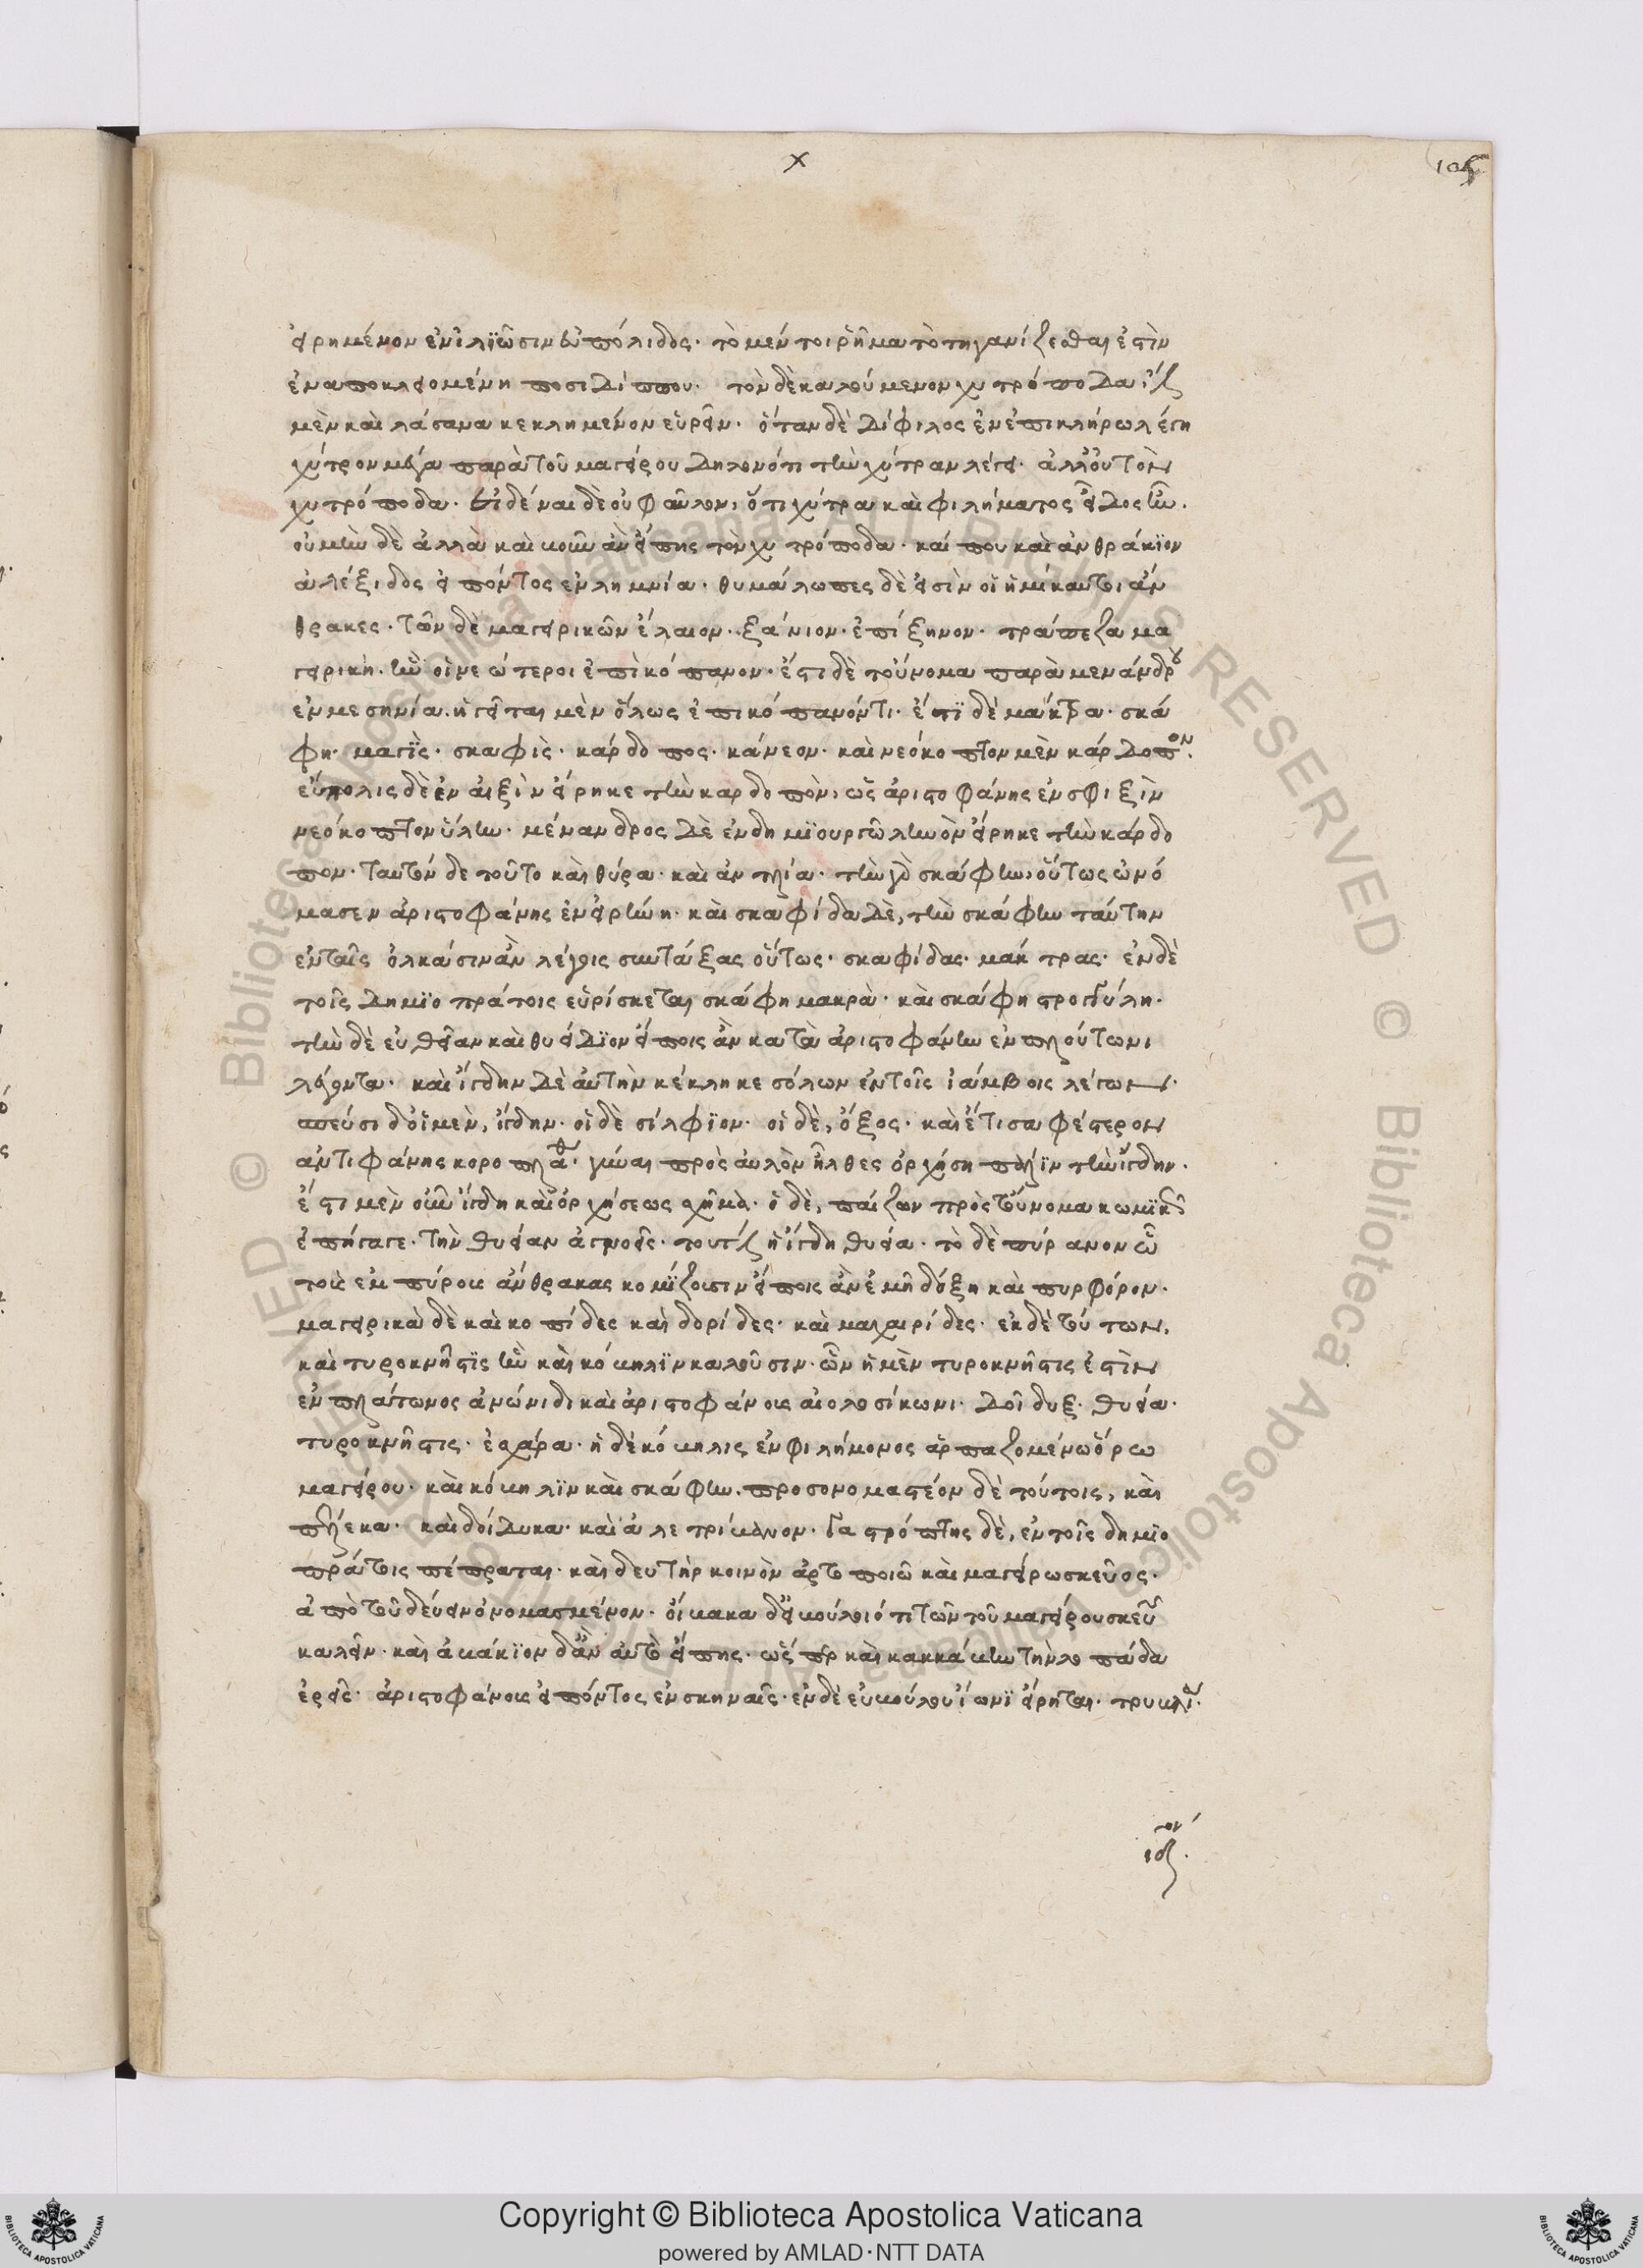 x
105
εἰρημένον ἐν ἰλιῶσιν εὐπόλιδος· τὸ μέν τοι ῥῆμα τὸ τηγανίζεσθαι ἐστὶν
ἐν ἀποκλειομένη ποσιδίππου· τὸν δὲ καλούμενον χυτρόποδα ἔστι
μὲν καὶ λάσανα κεκλημένον εὑρεῖν· ὅταν δὲ δίφιλος ἐν ἐπικλήρω λέγη
παρὰ τοῦ μαγείρου δηλονότι τὴν χύτραν λέγει· ἀλλ' οὐ τὸν
χυτρόποδα· εἰδέναι δὲ οὐ φαῦλον, ὅτι χύτρα καὶ φιλήματος εἶδος ἦν.
οὐ μὴν δὲ ἀλλὰ καὶ κοινὸν ἂν εἴποις τὸν χυτρόποδα· καί που καὶ ἀνθράκιον
ἀλέξιδος εἰπόντος ἐν λημνία· θυμάλωπες δὲ εἰσὶν οἱ ἡμίκαυτοι ἄν
θρακες· τῶν δὲ μαγειρικῶν ἔλαιον· ξάνιον· ἐπίξηνον· τράπεζα μα
γειρική· ἣν οἱ νεώτεροι ἐπικόπανον· ἔστι δὲ τοὔνομα παρὰ μενάνδρου
ἐν μεσηνία· ἡγεῖται μὲν ὅλως ἐπικόπανόν τι· ἔτι δὲ μάκτρα· σκά
φη· μαγὶς· σκαφὶς· κάρδοπος· κάνεον· καὶ νεόκοπτον μὲν κάρδοπον·
εὔπολις δὲ ἐν αἰξὶν εἴρηκε τὴν καρδοπὸν, ὡς ἀριστοφάνης ἐν σφιξὶν
νεόκοπτον ὕλην· μένανδρος δὲ ἐν δημιουργῶ ληνὸν εἴρηκε τὴν κάρδο
πον· ταυτόν δε τοῦτο καὶ θύρα· καὶ ἀντλία· τὴν γὰρ σκάφην, οὕτως ὠνό
μασεν ἀριστοφάνης ἐν εἰρήνη· καὶ σκαφίδα δὲ, τὴν σκάφην ταύτην
ἐν ταῖς ὁλκάσιν ἂν λέγοις συντάξας οὕτως· σκαφίδας· μάκτρας· ἐν δὲ
τοῖς δημιοπράτοις εὑρίσκεται σκάφη μακρὰ· καὶ σκάφη στρογγύλη·
τὴν δὲ εὐθείαν καὶ θυείδιον εἴποις ἂν κατὰ ἀριστοφάνην ἐν πλούτω νι
λέγοντα· καὶ ἴγδην δὲ αὐτὴν κέκληκε σόλων ἐν τοῖς ἰάμβοις λέγων·
σπεύσι δ' οἱ μὲν, ἴγδην· οἱ δὲ σίλφιον· οἱ δὲ, ὄξος· καὶ ἔτι σαφέστερον
ἀντιφάνης κοροπλάθω· γύναι πρὸς αὐλὸν ἦλθες ὀρχήση πάλιν τὴν ἴγδην·
ἔστι μὲν οὖν ἴγδη καὶ ὀρχήσεως σχῆμα· ὁ δὲ, παίζων πρὸς τοὔνομα κωμικῶς
ἐπήγαγε· τὴν θυείαν ἀγνοεῖς· τουτέστιν ἡ ἴγδη θυεία· τὸ δὲ πύρανον ὧ
τοὺς ἐμπύρους ἄνθρακας κομίζουσιν εἴποις ἂν ἐμῆ δόξη καὶ πυρφόρον·
μαγειρικὰ δὲ καὶ κοπίδες καὶ δορίδες· καὶ μαχαιρίδες· ἐκ δὲ τούτων,
καὶ τυρόκνηστις ἣν καὶ κόκηλιν καλοῦσιν· ὧν ἡ μὲν τυρόκνηστις ἐστὶν
ἐν πλάτωνος ἀνώνιδι καὶ ἀριστοφάνους αἰολοσίκωνι· δοῖδυξ· θυεία·
τυρόκνηστις· ἐσχάρα· ἡ δὲ κόκηλις ἐν φιλήμονος ἁρπαζομένω ὅρω
μαγείρου· καὶ κόκηλιν καὶ σκάφην· προσονομαστέον δὲ τούτοις, καὶ
καὶ δοίδυκα· καὶ ἀλετρίβανον· γαστρόπτης δὲ, ἐν τοῖς δημιο
πράτοις πέπραται· καὶ δευτὴρ κοινὸν ἀρτοποιῶ καὶ μαγείρω σκεῦος·
ἀπὸ τοῦ δεύειν ὀνομασμένον· τῶν τοῦ μαγείρου σκευῶν
καλεῖν· καὶ ἀκάκιον δ' ἂν αὐτὸ εἴποις· ὥσπερ καὶ κακκάβην τὴν λοπάδα
ἐρεῖς· ἀριστοφάνους εἰπόντος ἐν σκηναῖς· ἐν δὲ εὐβούλου ἴωνι εἴρηται·